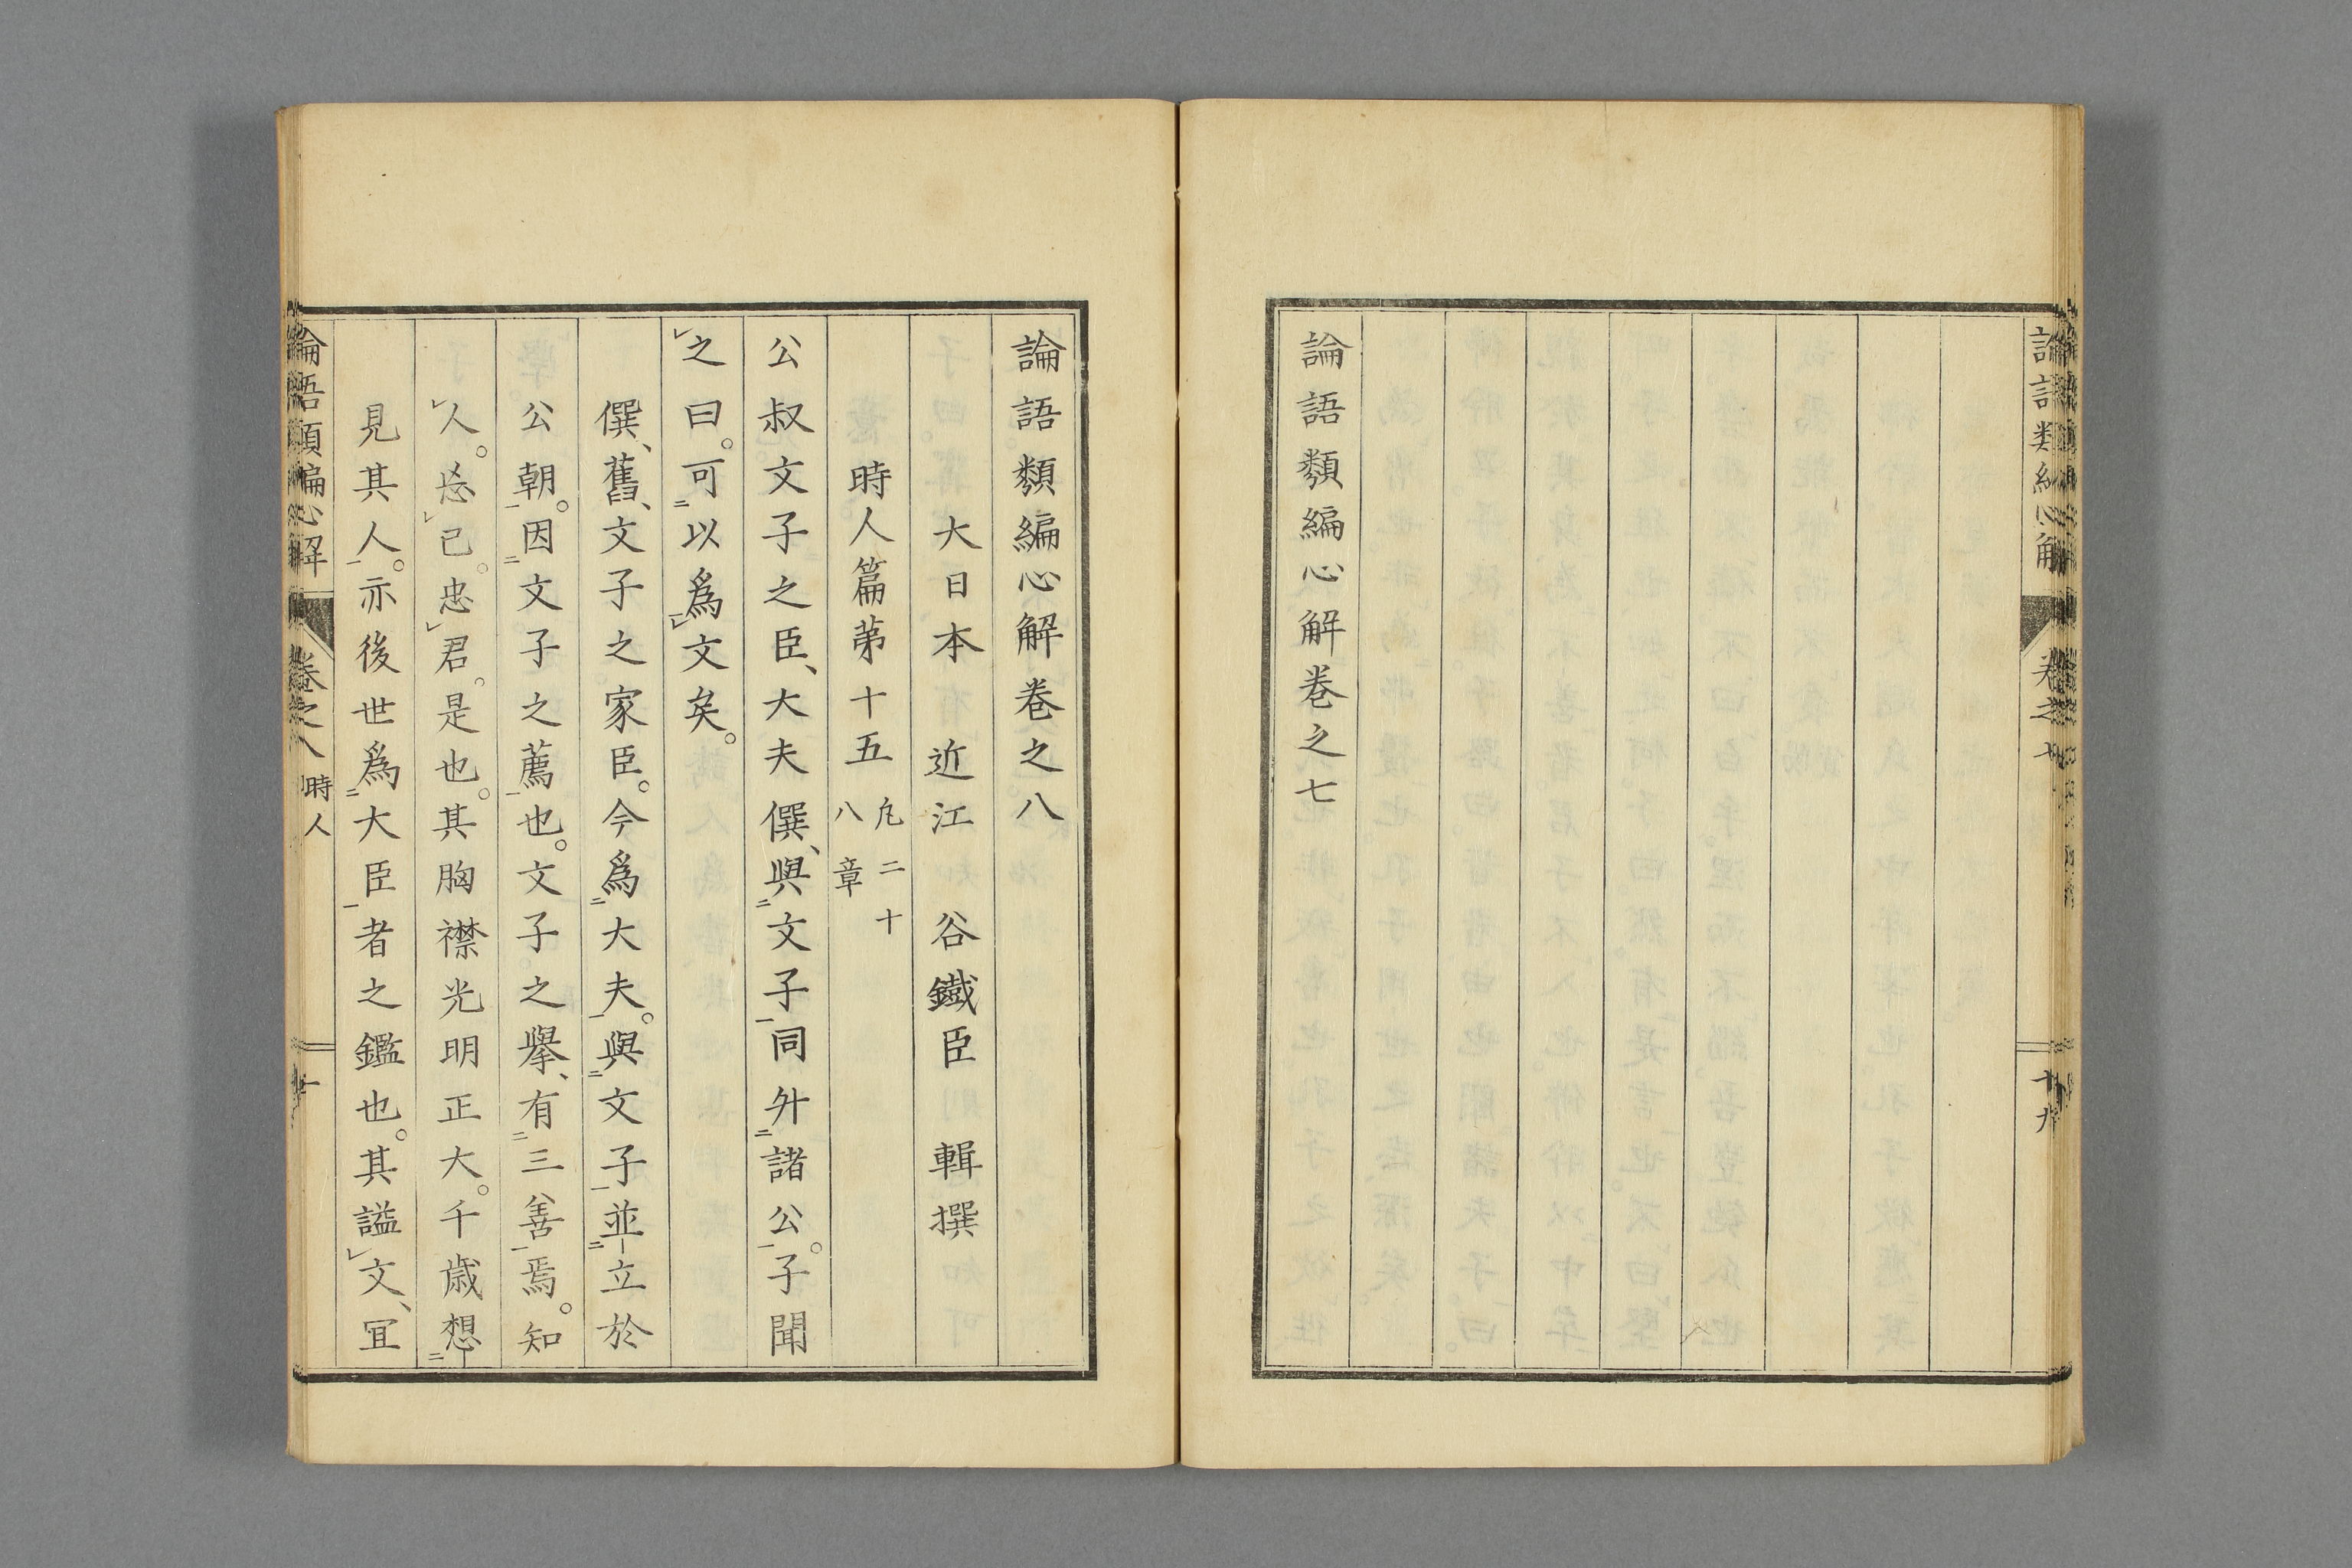 論語類編心解卷之七
論語類編心解卷之八
大日本 近江 谷鐵臣 輯撰
時人篇第十五 凡二十八章
公叔文子之臣、大夫僎、與㆓文子㆒同升㆓諸公㆒。子聞
㆑之曰。可㆓以爲㆑文矣。
僎、舊、文子之家臣。今爲㆓大夫㆒。與㆓文子㆒並㆓立於
公朝㆒。因㆓文子之薦㆒也。文子之擧、有㆓三善㆒焉。知
㆑人。忘㆑己。忠㆑君。是也。其胸襟光明正大。千歲想㆓
見其人㆒。亦後世爲㆓大臣㆒者之鑑也。其謚㆑文、宜
論語類編心解 卷之八 時人